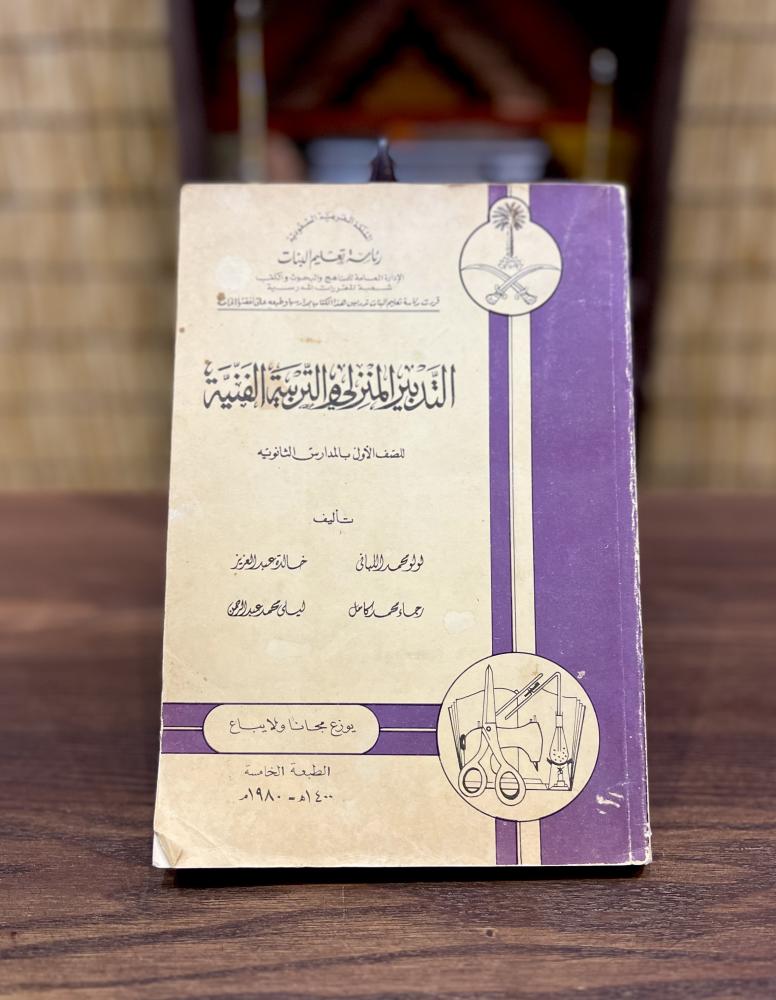 المملكة العربية السعودية
رئاسة تعليم البنات
الإدارة العامة للمناهج والبحوث والكتب
شعبة المقررات المدرسية
قررت رئاسة تعليم البنات تدريس هذا الكتاب بمدارسها وطبعه على نفقتها الخاصة
التدبير المنزلي والتربية الفنية
للصف الأول بالمدارس الثانوية
تأليف
لولو محمد اللهاني خالدة عبد العزيز
رجاء محمد كامل ليلى محمد عبد الرحمن
يوزع مجانا ولا يباع
الطبعة الخامسة
١٤٠٠هـ - ١٩٨٠م